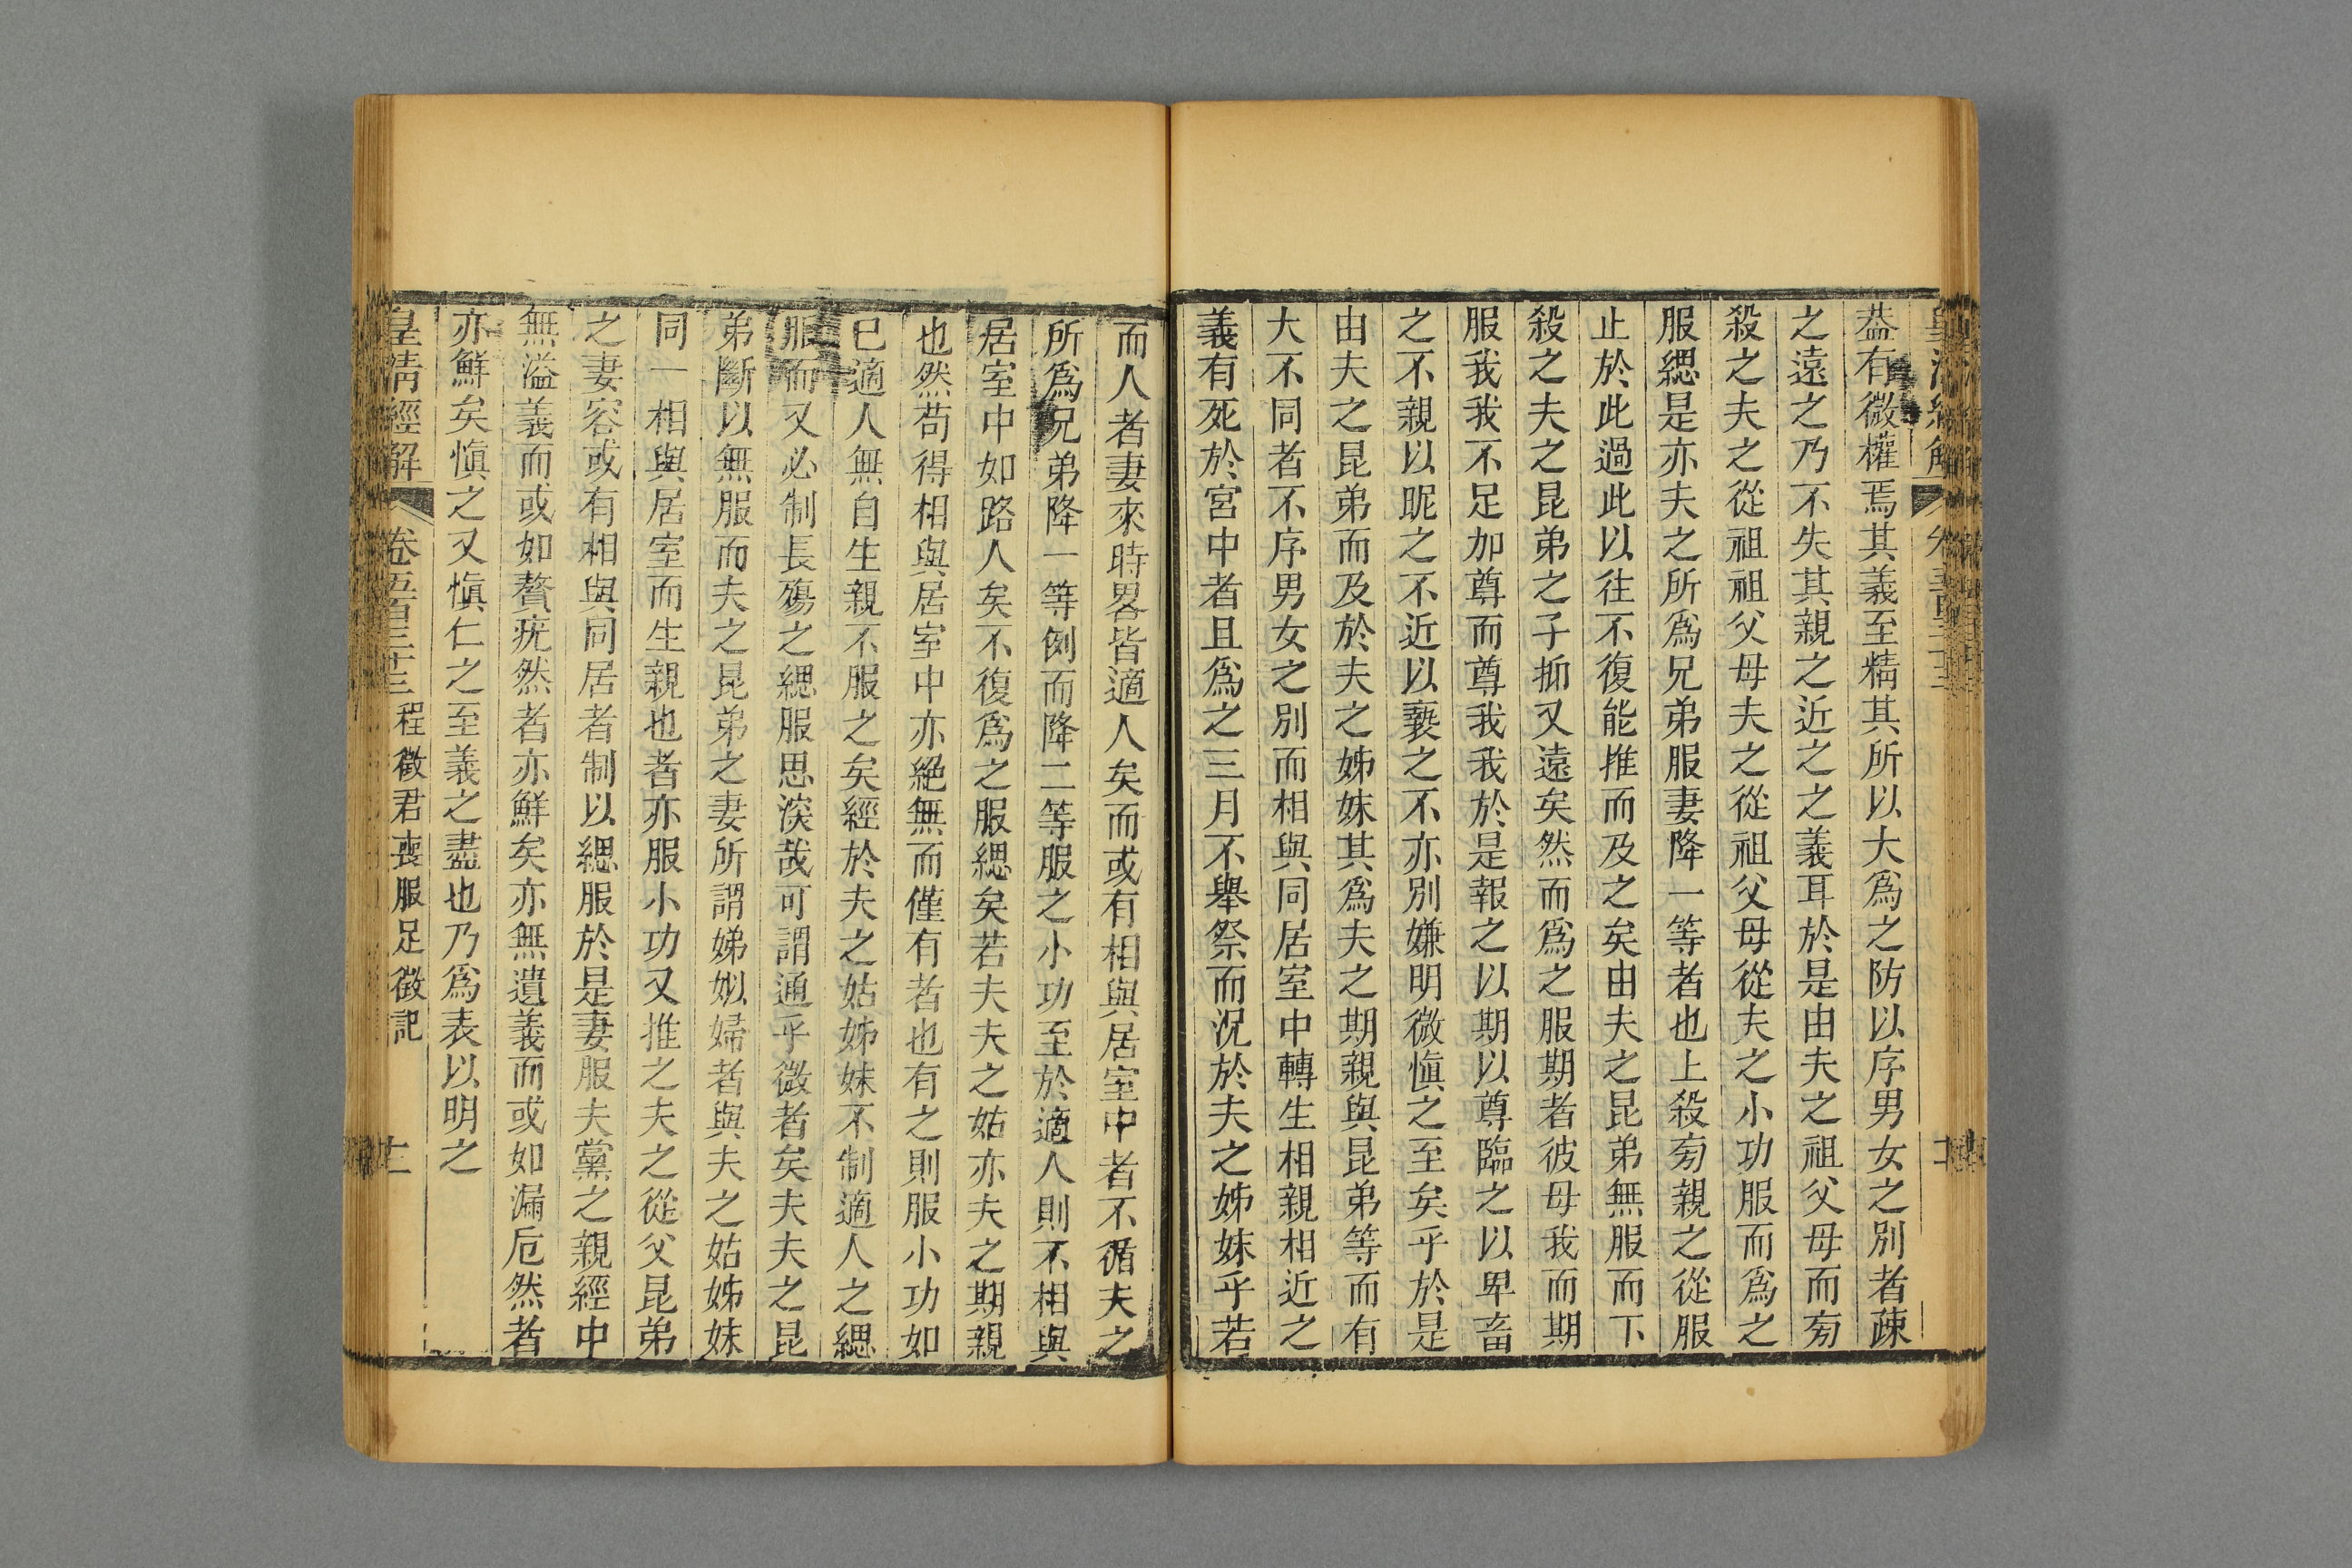 葢有微權焉其義至精其所以大爲之防以序男女之別者疎
之遠之乃不失其親之近之之義耳於是由夫之祖父母而旁
殺之夫之從祖祖父母夫之從祖父母從夫之小功服而爲之
服緦是亦夫之所爲兄弟服妻降一等者也上殺旁親之從服
止於此過此以往不復能推而及之矣由夫之昆弟無服而下
殺之夫之昆弟之子抑又遠矣然而爲之服期者彼母我而期
服我我不足加尊而尊我我於是報之以期以尊臨之以卑畜
之不親以昵之不近以褻之不亦別嫌明微愼之至矣乎於是
由夫之昆弟而及於夫之姊妹其爲夫之期親與昆弟等而有
大不同者不序男女之別而相與同居室中轉生相親相近之
義有死於宮中者且爲之三月不舉祭而況於夫之姊妹乎若
而人者妻來時畧皆適人矣而或有相與居室中者不循夫之
所爲兄弟降一等例而降二等服之小功至於適人則不相與
居室中如路人矣不復爲之服緦矣若夫夫之姑亦夫之期親
也然苟得相與居室中亦絕無而僅有者也有之則服小功如
已適人無自生親不服之矣經於夫之姑姊妹不制適人之緦
服而又必制長殤之緦服思湥哉可謂通乎微者矣夫夫之昆
弟斷以無服而夫之昆弟之妻所謂娣姒婦者與夫之姑姊妹
同一相與居室而生親也者亦服小功又推之夫之從父昆弟
之妻容或有相與同居者制以緦服於是妻服夫黨之親經中
無溢義而或如贅疣然者亦鮮矣亦無遺義而或如漏巵然者
亦鮮矣愼之又愼仁之至義之盡也乃爲表以明之
皇淸經解 卷五百三十三 程徵君喪服足徵記